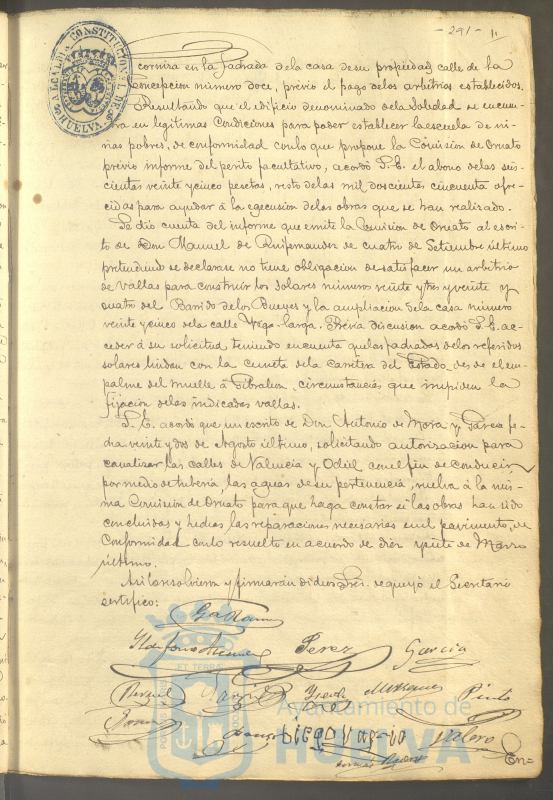 - 291 -
ALCALDIA CONSTITUCIONAL DE HUELVA
cornisa en la fachada de la casa de su propiedad calle de la
Concepcion número doce, previo el pago de los arbitrios establecidos.
Resultando que el edificio denominado de la Soledad se encuen-
tra en legitimas condiciones para poder establecer la escuela de ni-
ñas pobres, de conformidad con lo que propone la Comision de Ornato
previo informe del perito facultativo, acordó S. E. el abono de las seis-
cientas veinte y cinco pesetas, resto de las mil doscientas cincuenta ofre-
cidas para ayudar á la egecusion de las obras que se han realizado.
Se dio cuenta del informe que emite la Comision de Ornato al escri-
to de Don Manuel de Quifernandez de cuatro de Setiembre último
pretendiendo se declarase no tiene obligacion de satisfacer un arbitrio
de vallas para construir los solares números veinte y tres y veinte y
cuatro del Barrido de los Bueyes y la ampliacion de la casa número
veinte y cinco de la calle Vega-larga. Previa discusion acordó S. E. ac-
ceder á su solicitud, teniendo en cuenta que las fachadas de los referidos
solares lindan con la cuneta de la carretera del Estado, desde el em-
palme del muelle á Gibraleon, circunstancias que impiden la
fijacion de las indicadas vallas.
S. E. acordó que un escrito de Don Antonio de Mora y Garcia fe-
cha veinte y dos de Agosto último, solicitando autorizacion para
canalizar las calles de Valencia y Odiel con el fin de conducir
por medio de tuberia, las aguas de su pertenencia, vuelva á la mis-
ma Comision de Ornato para que haga constar si las obras han sido
concluidas y hechas las reparaciones necesarias en el pavimento, de
conformidad con lo resuelto en acuerdo de diez y siete de Marzo
último.
Asi lo resolvieron y firmarán dichos Sres. de que yo el Secretario
certifico:
Perez Garcia
Marquez Pinto
Diego Valero
En=
ET TERRAE
Ayuntamiento de
HUELVA